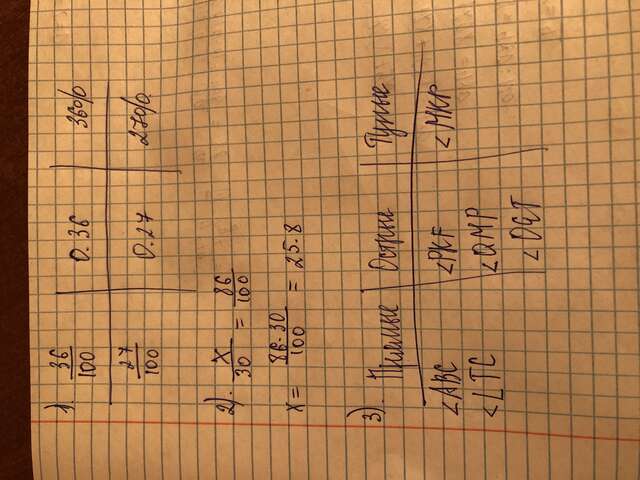 1). 36/100 0.36 36%
27/100 0.27 27%
2). x/30 = 86/100
x = 86·30/100 = 25.8
3). Прямые Острые Тупые
<ABC <PKF <MKP
<LTC <QMP
<OET